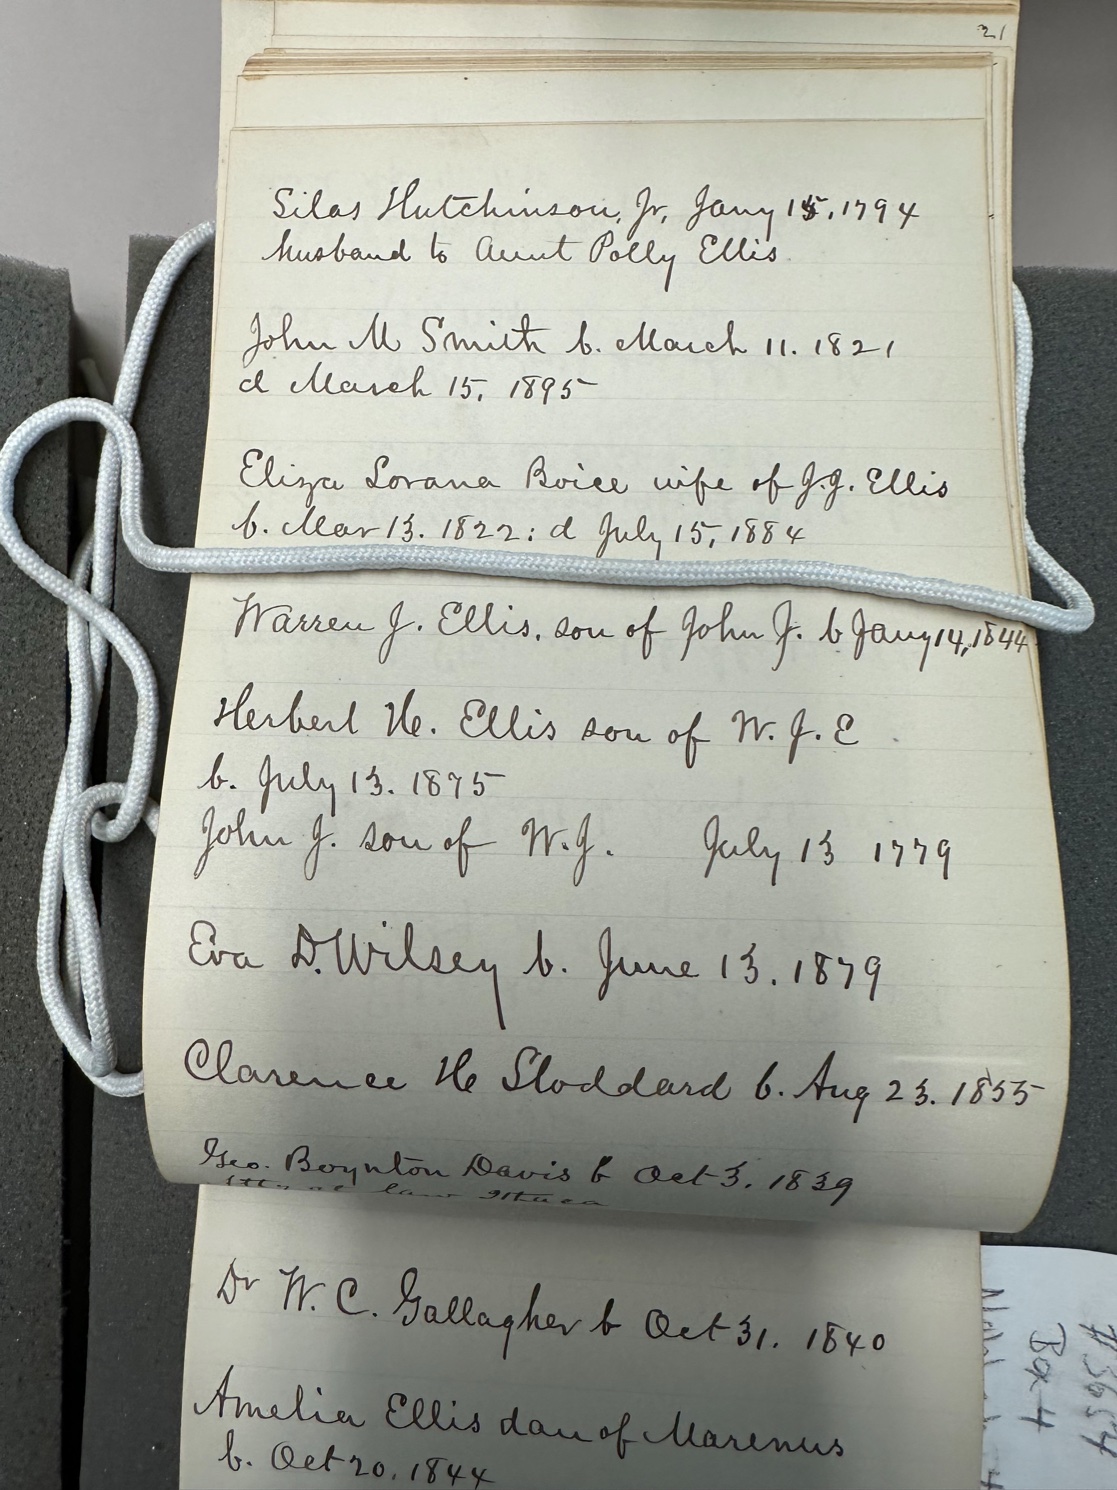 21
Silas Hutchinson, Jr, Jany 15, 1794
husband to Aunt Polly Ellis
John M Smith b. March 11. 1821
d March 15, 1895
Eliza Lorana Boice wife of J.J. Ellis
b. Mar 13. 1822: d July 15, 1884
Warren J. Ellis, son of John J. b Jany 14, 1844
Herbert H. Ellis son of W. J. E
b. July 13. 1875
John J. son of W.J. July 13 1779
Eva D. Wilsey b. June 13. 1879
Clarence H Stoddard b. Aug 23. 1855
Geo. Boynton Davis b Oct 3. 1839
Atty at law Ithaca
Dr W. C. Gallagher b Oct 31. 1840
Amelia Ellis dau of Marenus
b. Oct 20. 1844
#3654
Box 4